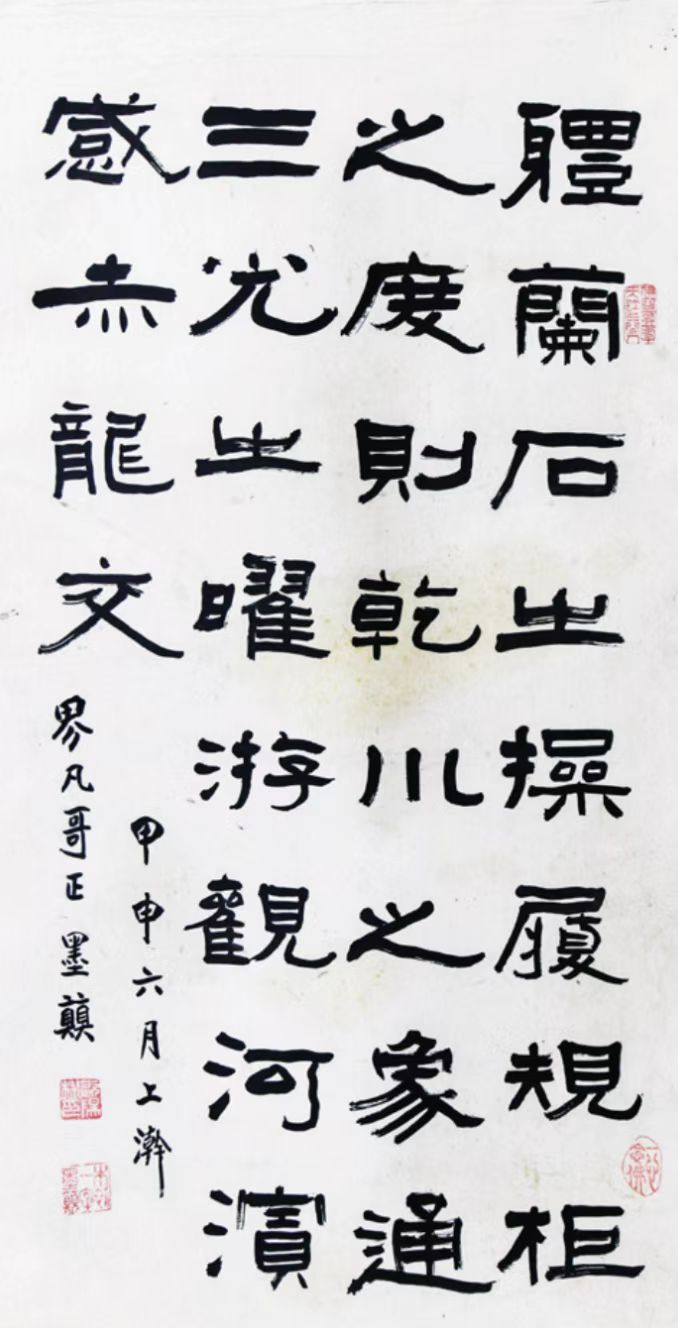 軆蘭石之操履規柜
之度則乾川之象通
三光之曜游觀河濱
感赤龍文
甲申六月上澣
界凡哥正 墨